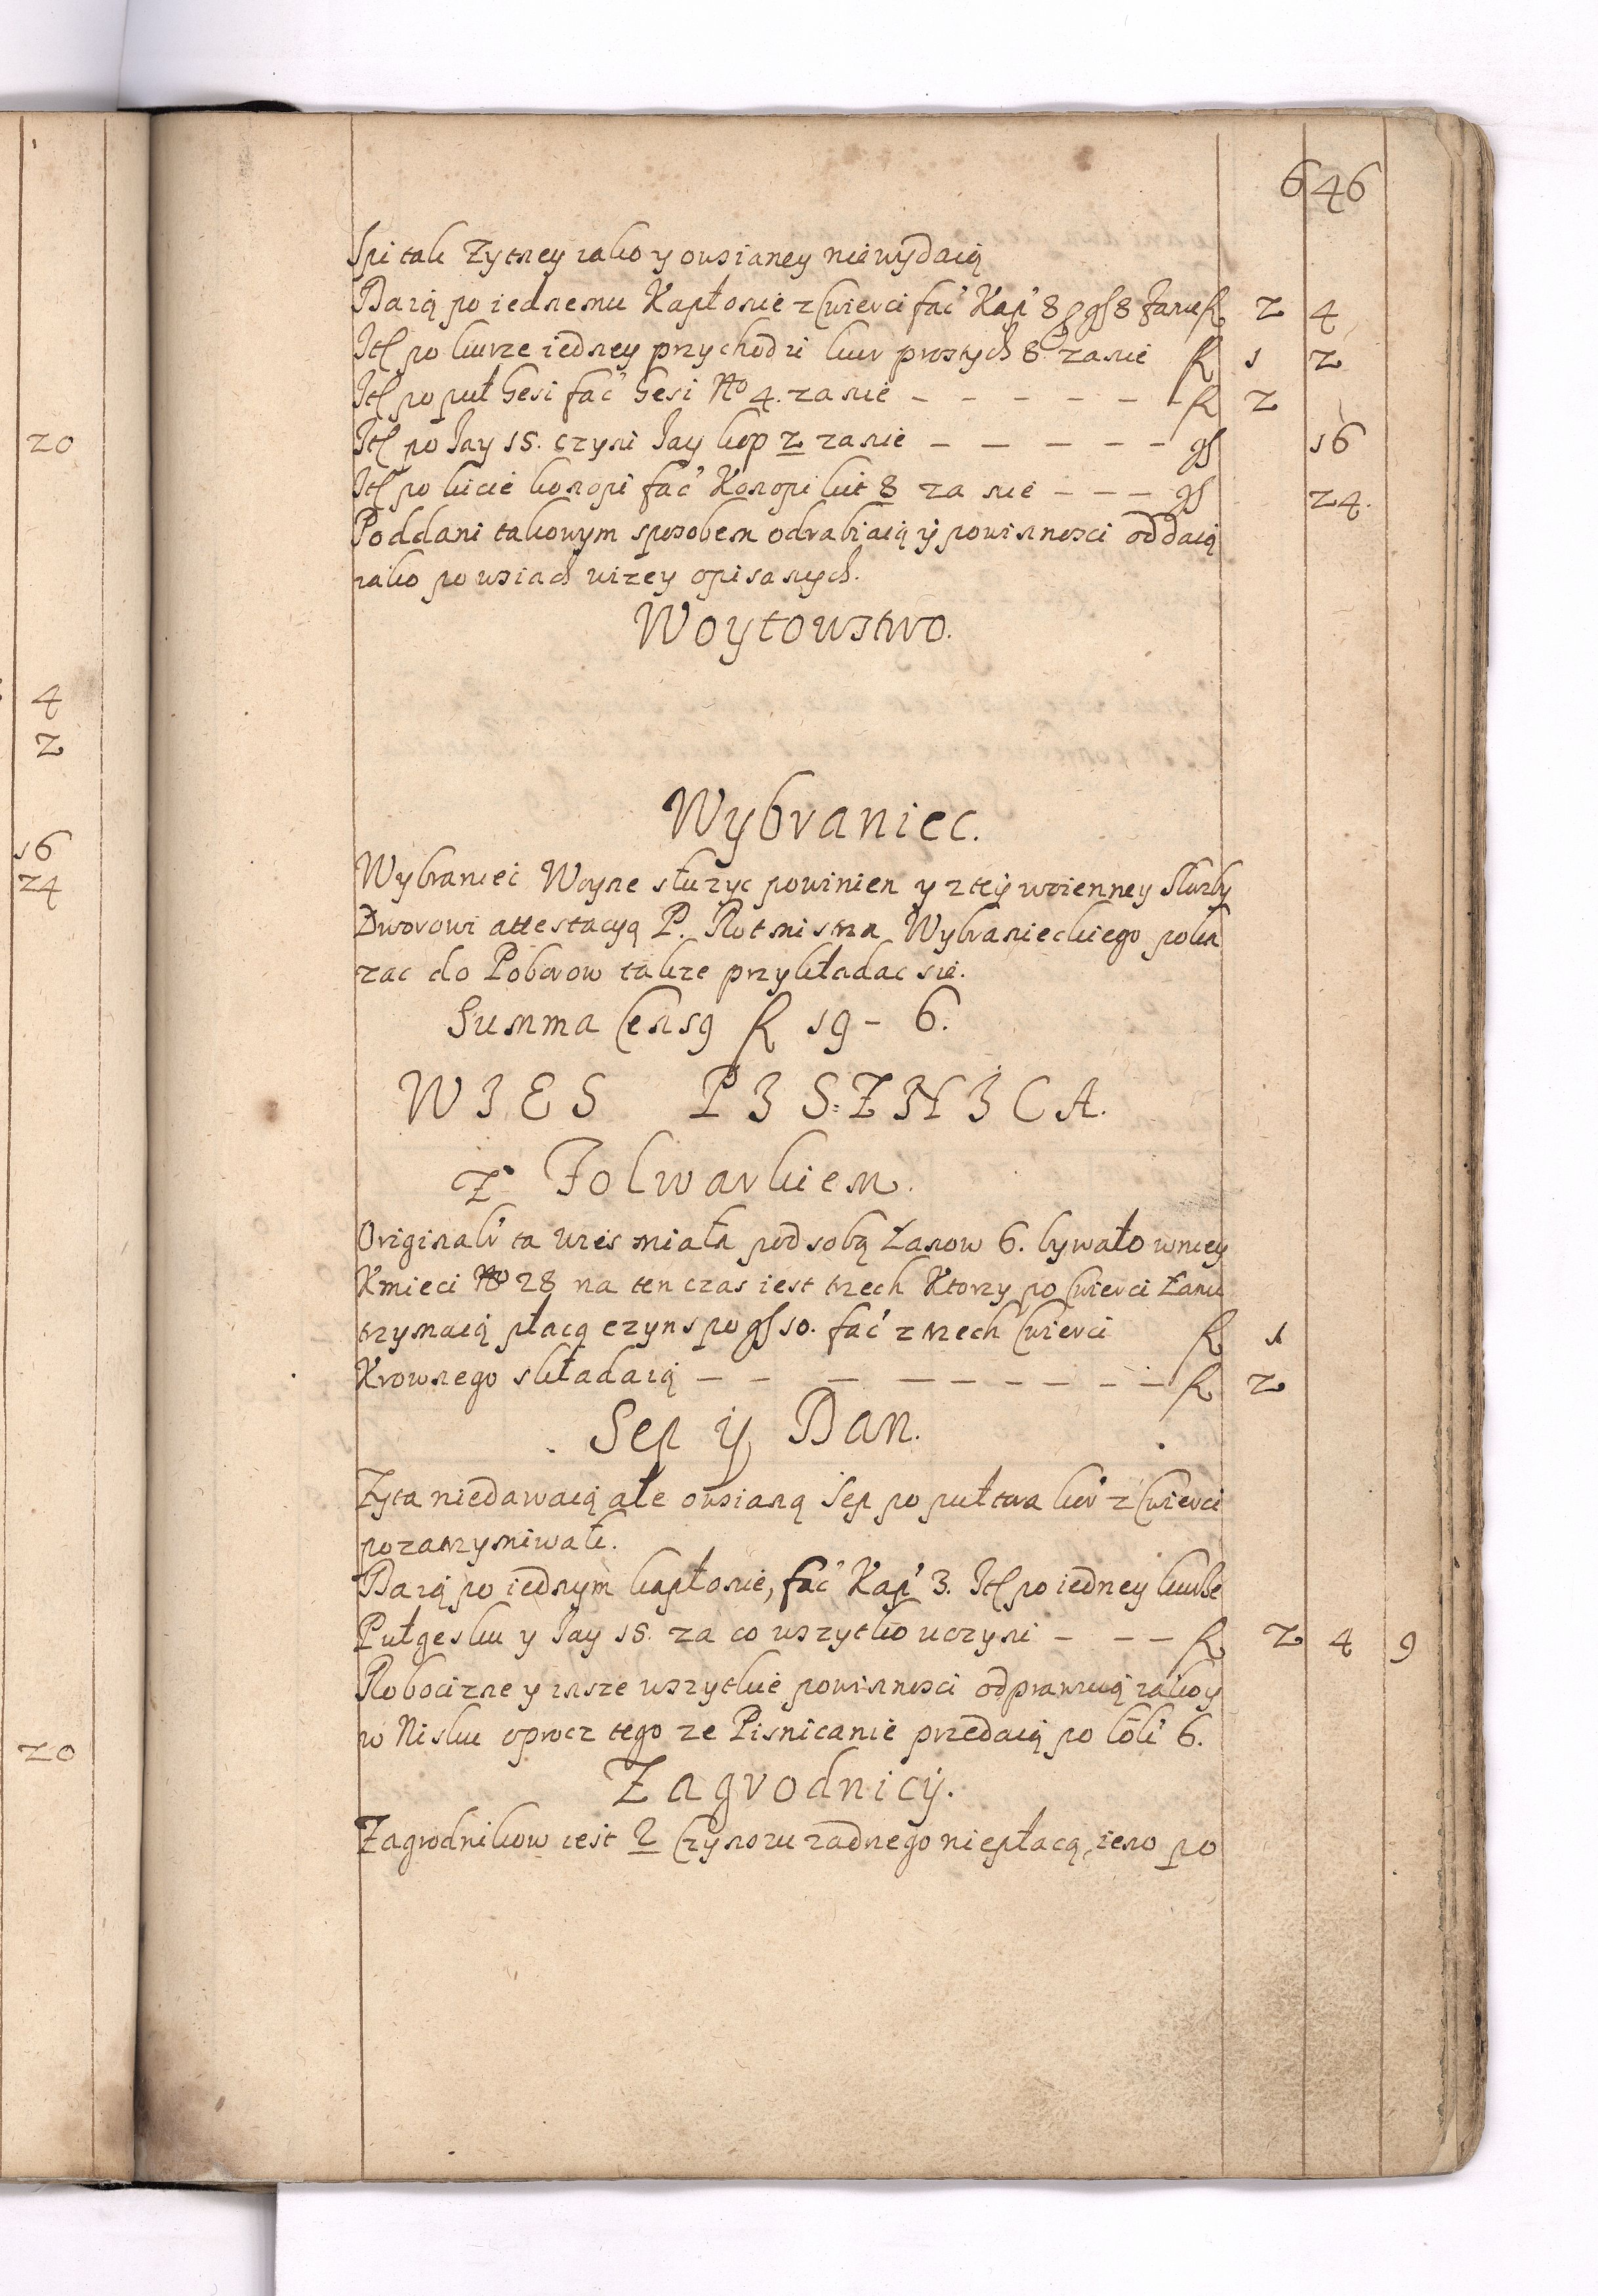 646
Spi tak Zytney iako y owsianey niewydaią
Daią po iednemu Kapłonie z Cwierci fac' Kap' 8 p gs 8 Zanie fl 2 4
Itl po kurze iedney przychodzi kur prostych 8. zanie fl 1 2
Itl po puł Gesi fac' Gesi No 4. zanie – – – – – – fl 2
Itl po Jay 15. czyni Jay kop 2 zanie – – – – – gs 16
Itl po kicie konopi fac' Konopi kit 8 za nie – – – gs 24.
Poddani takowym sposobem odrabiaią ÿ powinnosci oddaią
iako po wsiach wizey opisanych.
Woytowstwo.
Wybraniec.
Wybraniec Woyne słuzyc powinien y z teÿ woienney Sluzby
Dworowi attestacyą P. Rotmistrza Wybranieckiego poka
zac do Poborow takze przykładac sie.
Summa Census fl 19 – 6.
WIES PISZNICA.
Z Folwarkiem.
Original' ta wies miała pod sobą Łanow 6. bywało wniey
Kmieci No 28 na ten czas iest trzech Ktorzy po Cwierci Łanu
trzymaią płacą czyns po gs 10. fac' z trzech Cwierci fl 1
Krownego składaią – – – – – – – – – fl 2
Sep ÿ Dan.
Zyta niedawaią ale owsianą Sep po pułtwa kor' z Cwierci
pozatrzymiwali.
Daią po iednym kapłonie, fac' Kap' 3. Itl po iedney kurze
Pułgesku y Jay 15. za co wszytko uczyni – – – fl 2 4 9
Robocizne y insze wszytkie powinnosci odprawuią iako y
w Nisku oprocz tego ze Pisnicanie przedaią po łok' 6.
Zagrodnicÿ.
Zagrodnikow iest 2 Czynszu zadnego niepłacą, ieno po
20
4
2
16
24
20